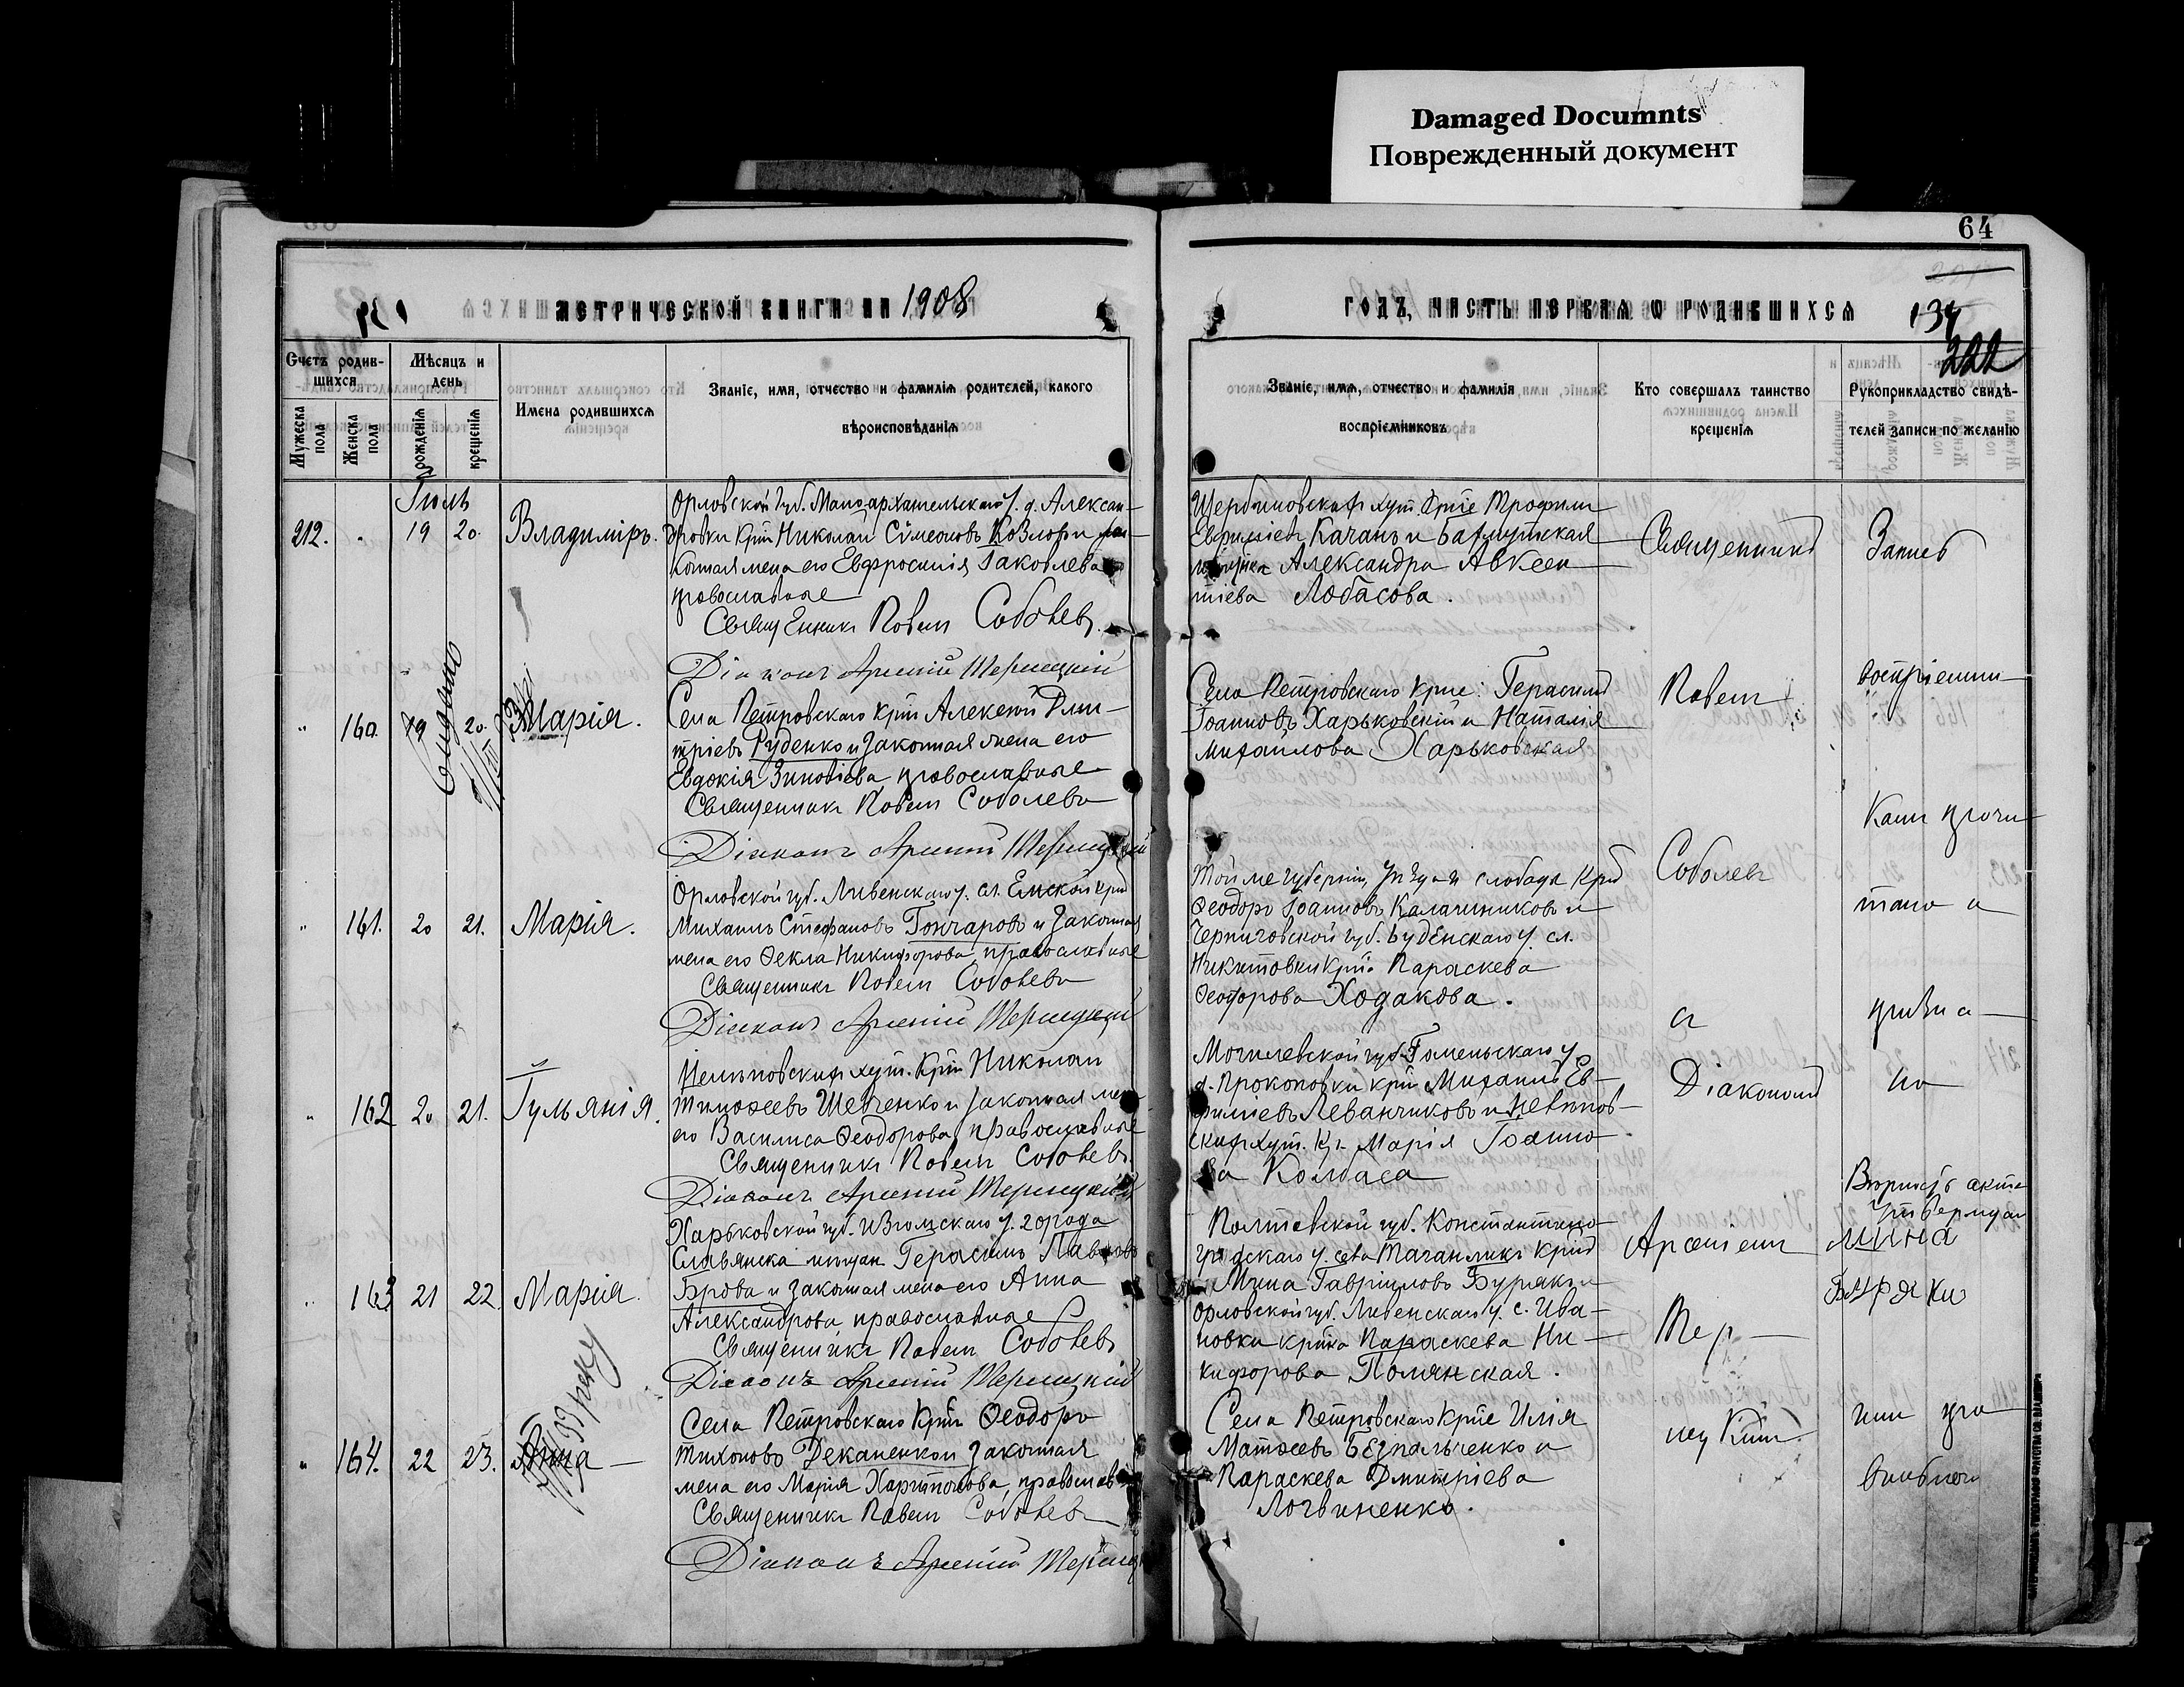 Damaged Documnts
Поврежденный документ
64
МЕТРИЧЕСКОЙ КНИГИ НА 1908
ГОДЪ, ЧАСТЬ ПЕРВАЯ Ѡ РОДИВШИХСЯ
134
222
Счетъ родив-
шихся
Мужеска пола
Женска пола
Мѣсяцъ и
день
рожденія
крещенія
Имена родившихся
Званіе, имя, отчество и фамилія родителей, какого
вѣроисповѣданія
Званіе, имя, отчество и фамилія
воспріемниковъ
Кто совершалъ таинство
крещенія
Рукоприкладство свидѣ-
телей записи по желанію
Іюль
212. " 19 20. Владиміръ.
Орловской губ. Малоархангельскаго у. д. Алексан-
дровки крн Николай Сѵмеоновъ Козловъ и зак-
конная жена его Евфросинія Іаковлева
православные
Священникъ Павелъ Соболевъ
Діаконъ Арсеній
Щербиновскихъ хут. Крне Трофимъ
Евфиміевъ Качанъ и Бахмутская
Александра Авксен-
тіева Лобасова.
" 160. 19 20. Марія.
Села Петровскаго крн Алексѣй Дми-
тріевъ Руденко и законная жена его
Евдокія Зиновіева, православные
Священникъ Павелъ Соболевъ
Діаконъ Арсеній
Села Петровскаго Крне: Герасимъ
Іоанновъ Харьковскій и Наталія
Михайлова Харьковская
" 161. 20 21. Марія.
Орловской губ. Ливенскаго у. сл. Ямской крн
Михаилъ Стефановъ Гончаровъ и законная
жена его Ѳекла Никифорова, православные
Священникъ Павелъ Соболевъ
Діаконъ Арсеній
Той же губерніи, уѣзда и слободы Крн
Ѳеодоръ Іоанновъ Калашниковъ и
Черниговской губ. у. сл.
Никитовки крн. Параскева
Ѳеодорова Ходакова.
" 162 20 21. Іульянія.
хут. Крн Николай
Тимоѳеевъ Шевченко и законная жена
его Василиса Ѳеодорова, православные
Священникъ Павелъ Соболевъ
Діаконъ Арсеній
Могилевской губ. Гомельскаго у.
д. Прокоповки крн Михаилъ Ев-
фиміевъ Леванчиковъ и
скихъ хут. Кр. Марія Іоанно-
ва Колбаса
" 163 21 22 Марія.
Харьковской губ. Изюмскаго у. города
Славянска мѣщан. Герасимъ Павловъ
Брова и законная жена его Анна
Александрова православные
Священникъ Павелъ Соболевъ
Діаконъ Арсеній
Полтавской губ. Константино-
градскаго у. села крн
Мина Гавріиловъ Бурякъ и
Орловской губ. Ливенскаго у. с. Ива-
новки крнка Параскева Ни-
кифорова Полянская.
" 164. 22 23. Анна
Села Петровскаго Крн Ѳеодоръ
Тихоновъ Деканенко и законная
жена его Марія Харитонова, православ
Священникъ Павелъ Соболевъ
Діаконъ Арсеній
Села Петровскаго Крне Илія
Матѳеевъ Безпальченко и
Параскева Дмитріева
Логвиненко.
Священникъ
Павелъ
Соболевъ
съ
Діакономъ
Арсеніемъ
Тер-
ницкимъ.
Запись
воспріемни-
ками прочи-
тана и
призна-
на
Вѣрность акта
утверждаю
мина
Буряки